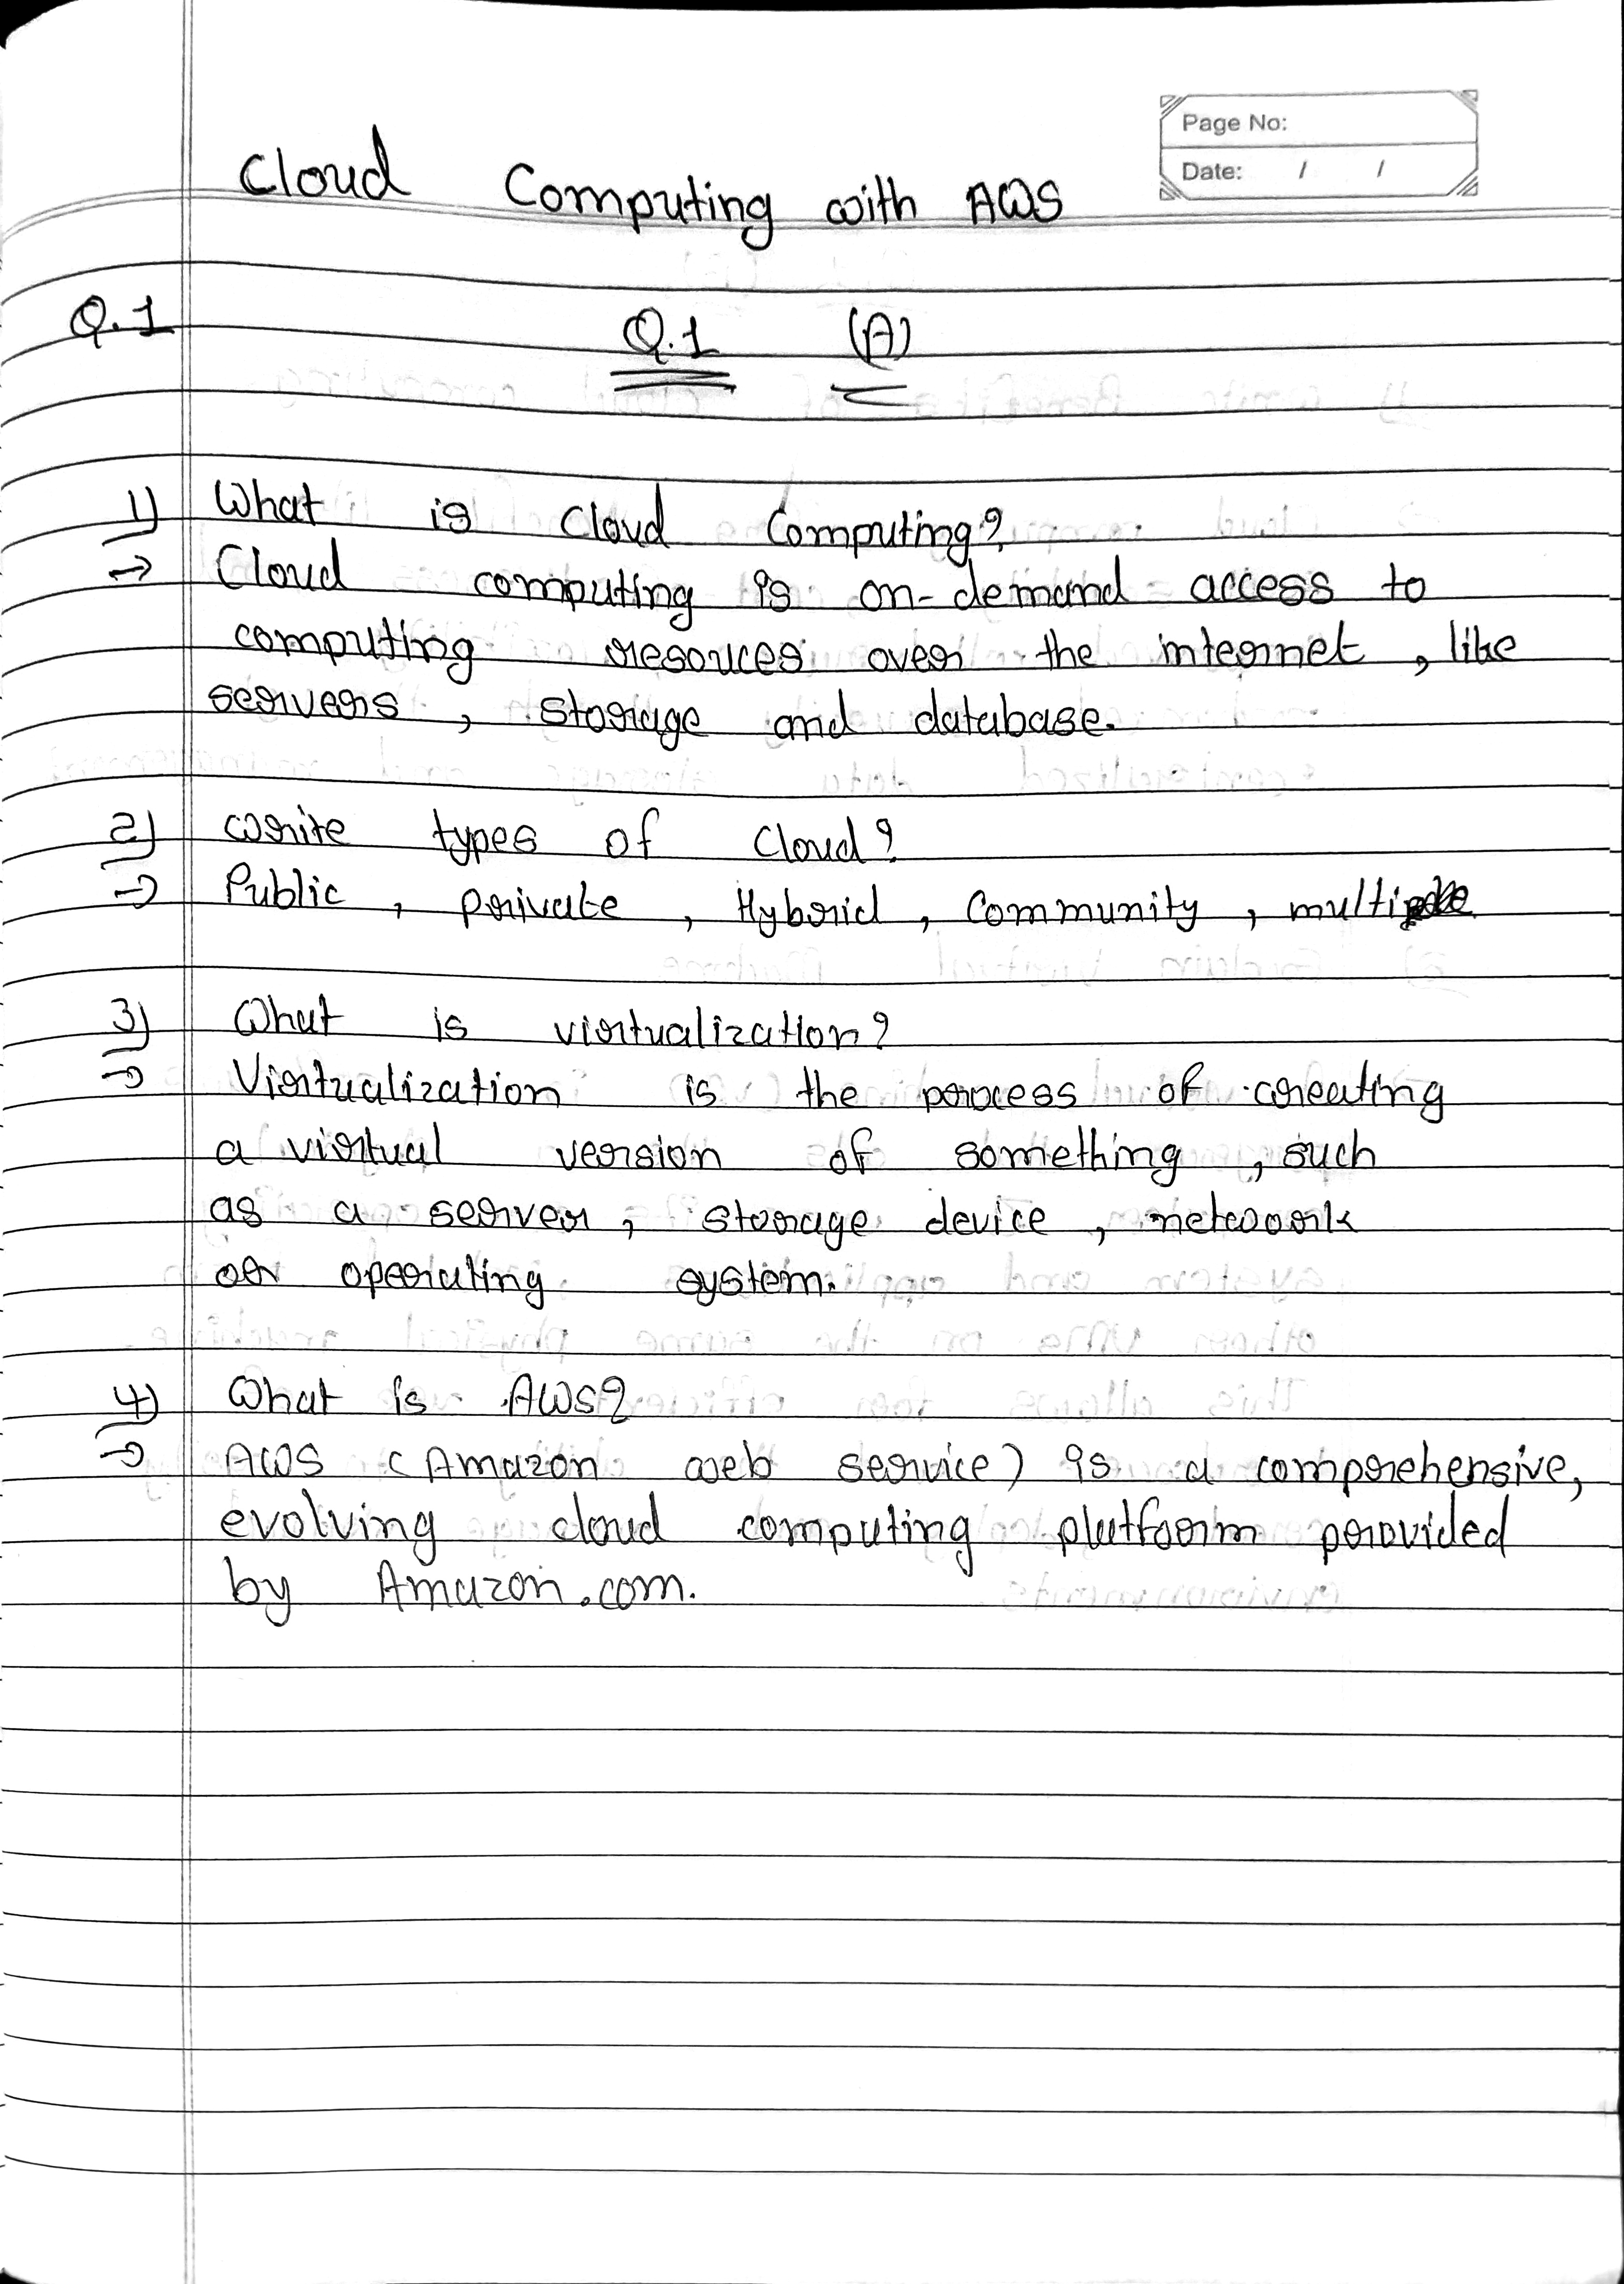 Page No:
Date: / /
Cloud Computing with AWS
Q.1 Q.1 (A)
1) What is Cloud Computing?
→ Cloud computing is on-demand access to
computing resouces over the internet, like
servers, storage and database.
2) write types of Cloud?
→ Public, private, Hybrid, Community, multi
3) What is virtualization?
→ Virtualization is the process of creating
a virtual version of something, such
as a server, storage device, network
or operating system.
4) What is AWS?
→ AWS (Amazon web service) is a comprehensive,
evolving cloud computing platform provided
by Amazon.com.